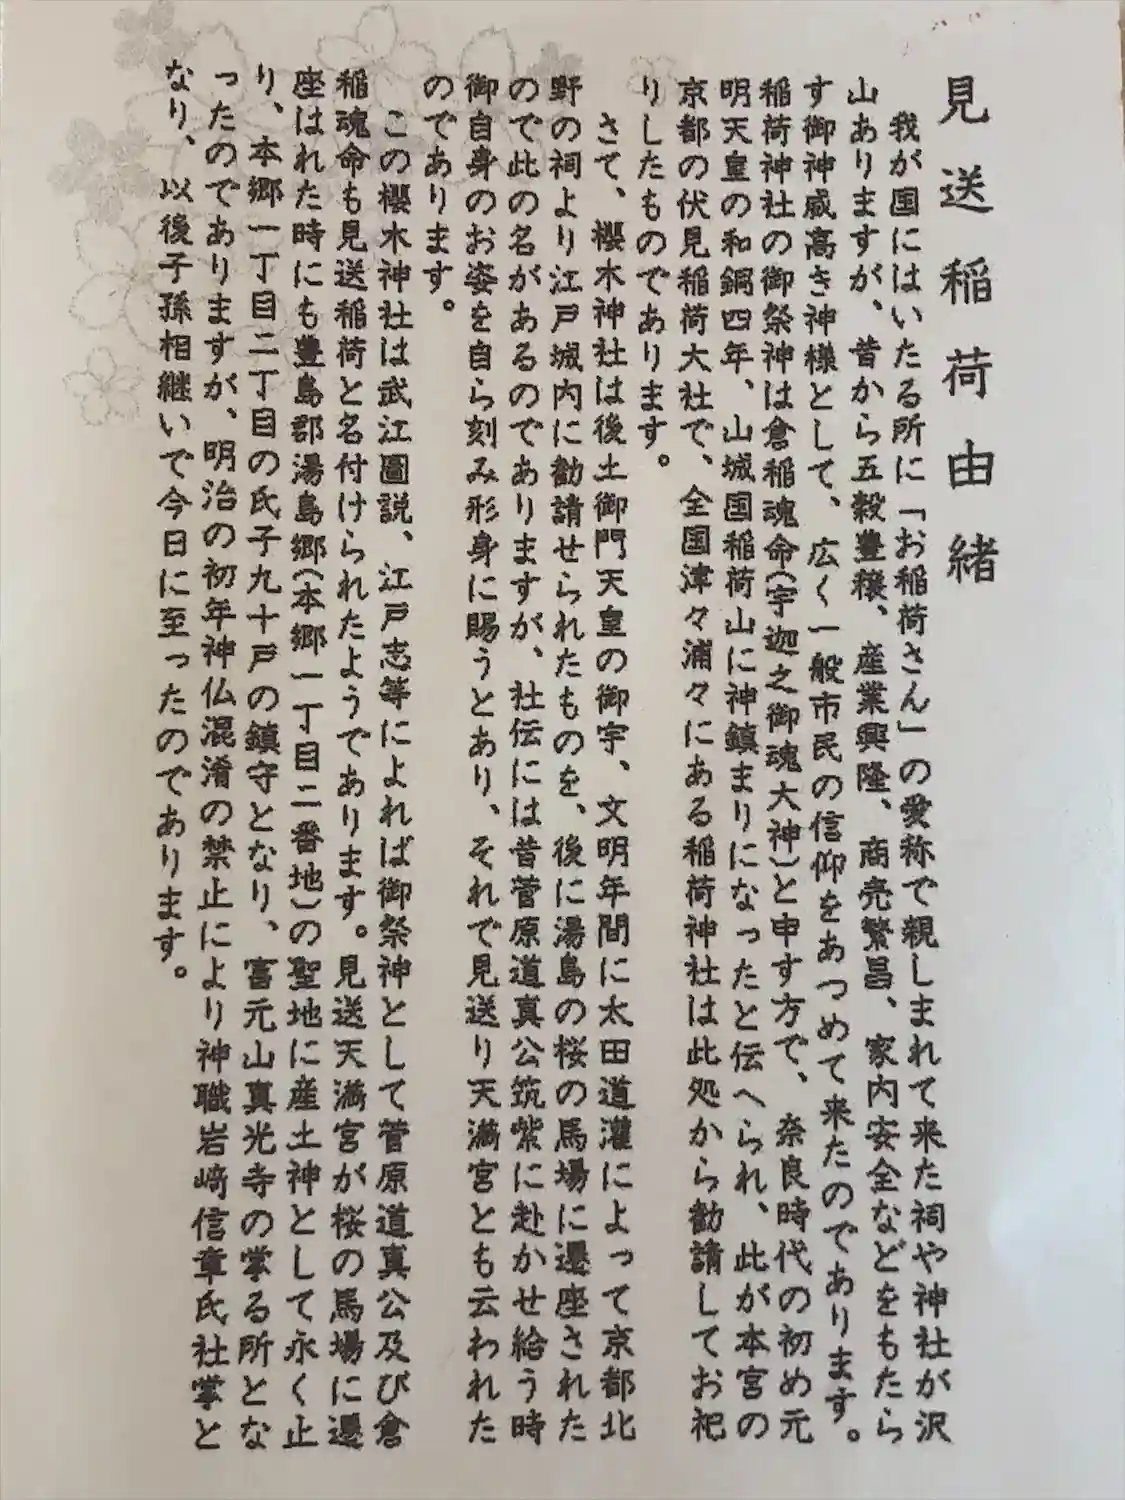 見送稲荷由緒
我が国にはいたる所に「お稲荷さん」の愛称で親しまれて来た祠や神社が沢
山ありますが、昔から五穀豊穣、産業興隆、商売繁昌、家内安全などをもたら
す御神威高き神様として、広く一般市民の信仰をあつめて来たのであります。
稲荷神社の御祭神は倉稲魂命(宇迦之御魂大神)と申す方で、奈良時代の初め元
明天皇の和銅四年、山城国稲荷山に神鎮まりになったと伝へられ、此が本宮の
京都の伏見稲荷大社で、全国津々浦々にある稲荷神社は此処から勧請してお祀
りしたものであります。
さて、櫻木神社は後土御門天皇の御宇、文明年間に太田道灌によって京都北
野の祠より江戸城内に勧請せられたものを、後に湯島の桜の馬場に遷座された
ので此の名があるのでありますが、社伝には昔菅原道真公筑紫に赴かせ給う時
御自身のお姿を自ら刻み形身に賜うとあり、それで見送り天満宮とも云われた
のであります。
この櫻木神社は武江圖説、江戸志等によれば御祭神として菅原道真公及び倉
稲魂命も見送稲荷と名付けられたようであります。見送天満宮が桜の馬場に遷
座はれた時にも豊島郡湯島郷(本郷一丁目二番地)の聖地に産土神として永く止
り、本郷一丁目二丁目の氏子九十戸の鎮守となり、富元山真光寺の掌る所とな
ったのでありますが、明治の初年神仏混淆の禁止により神職岩﨑信章氏社掌と
なり、以後子孫相継いで今日に至ったのであります。